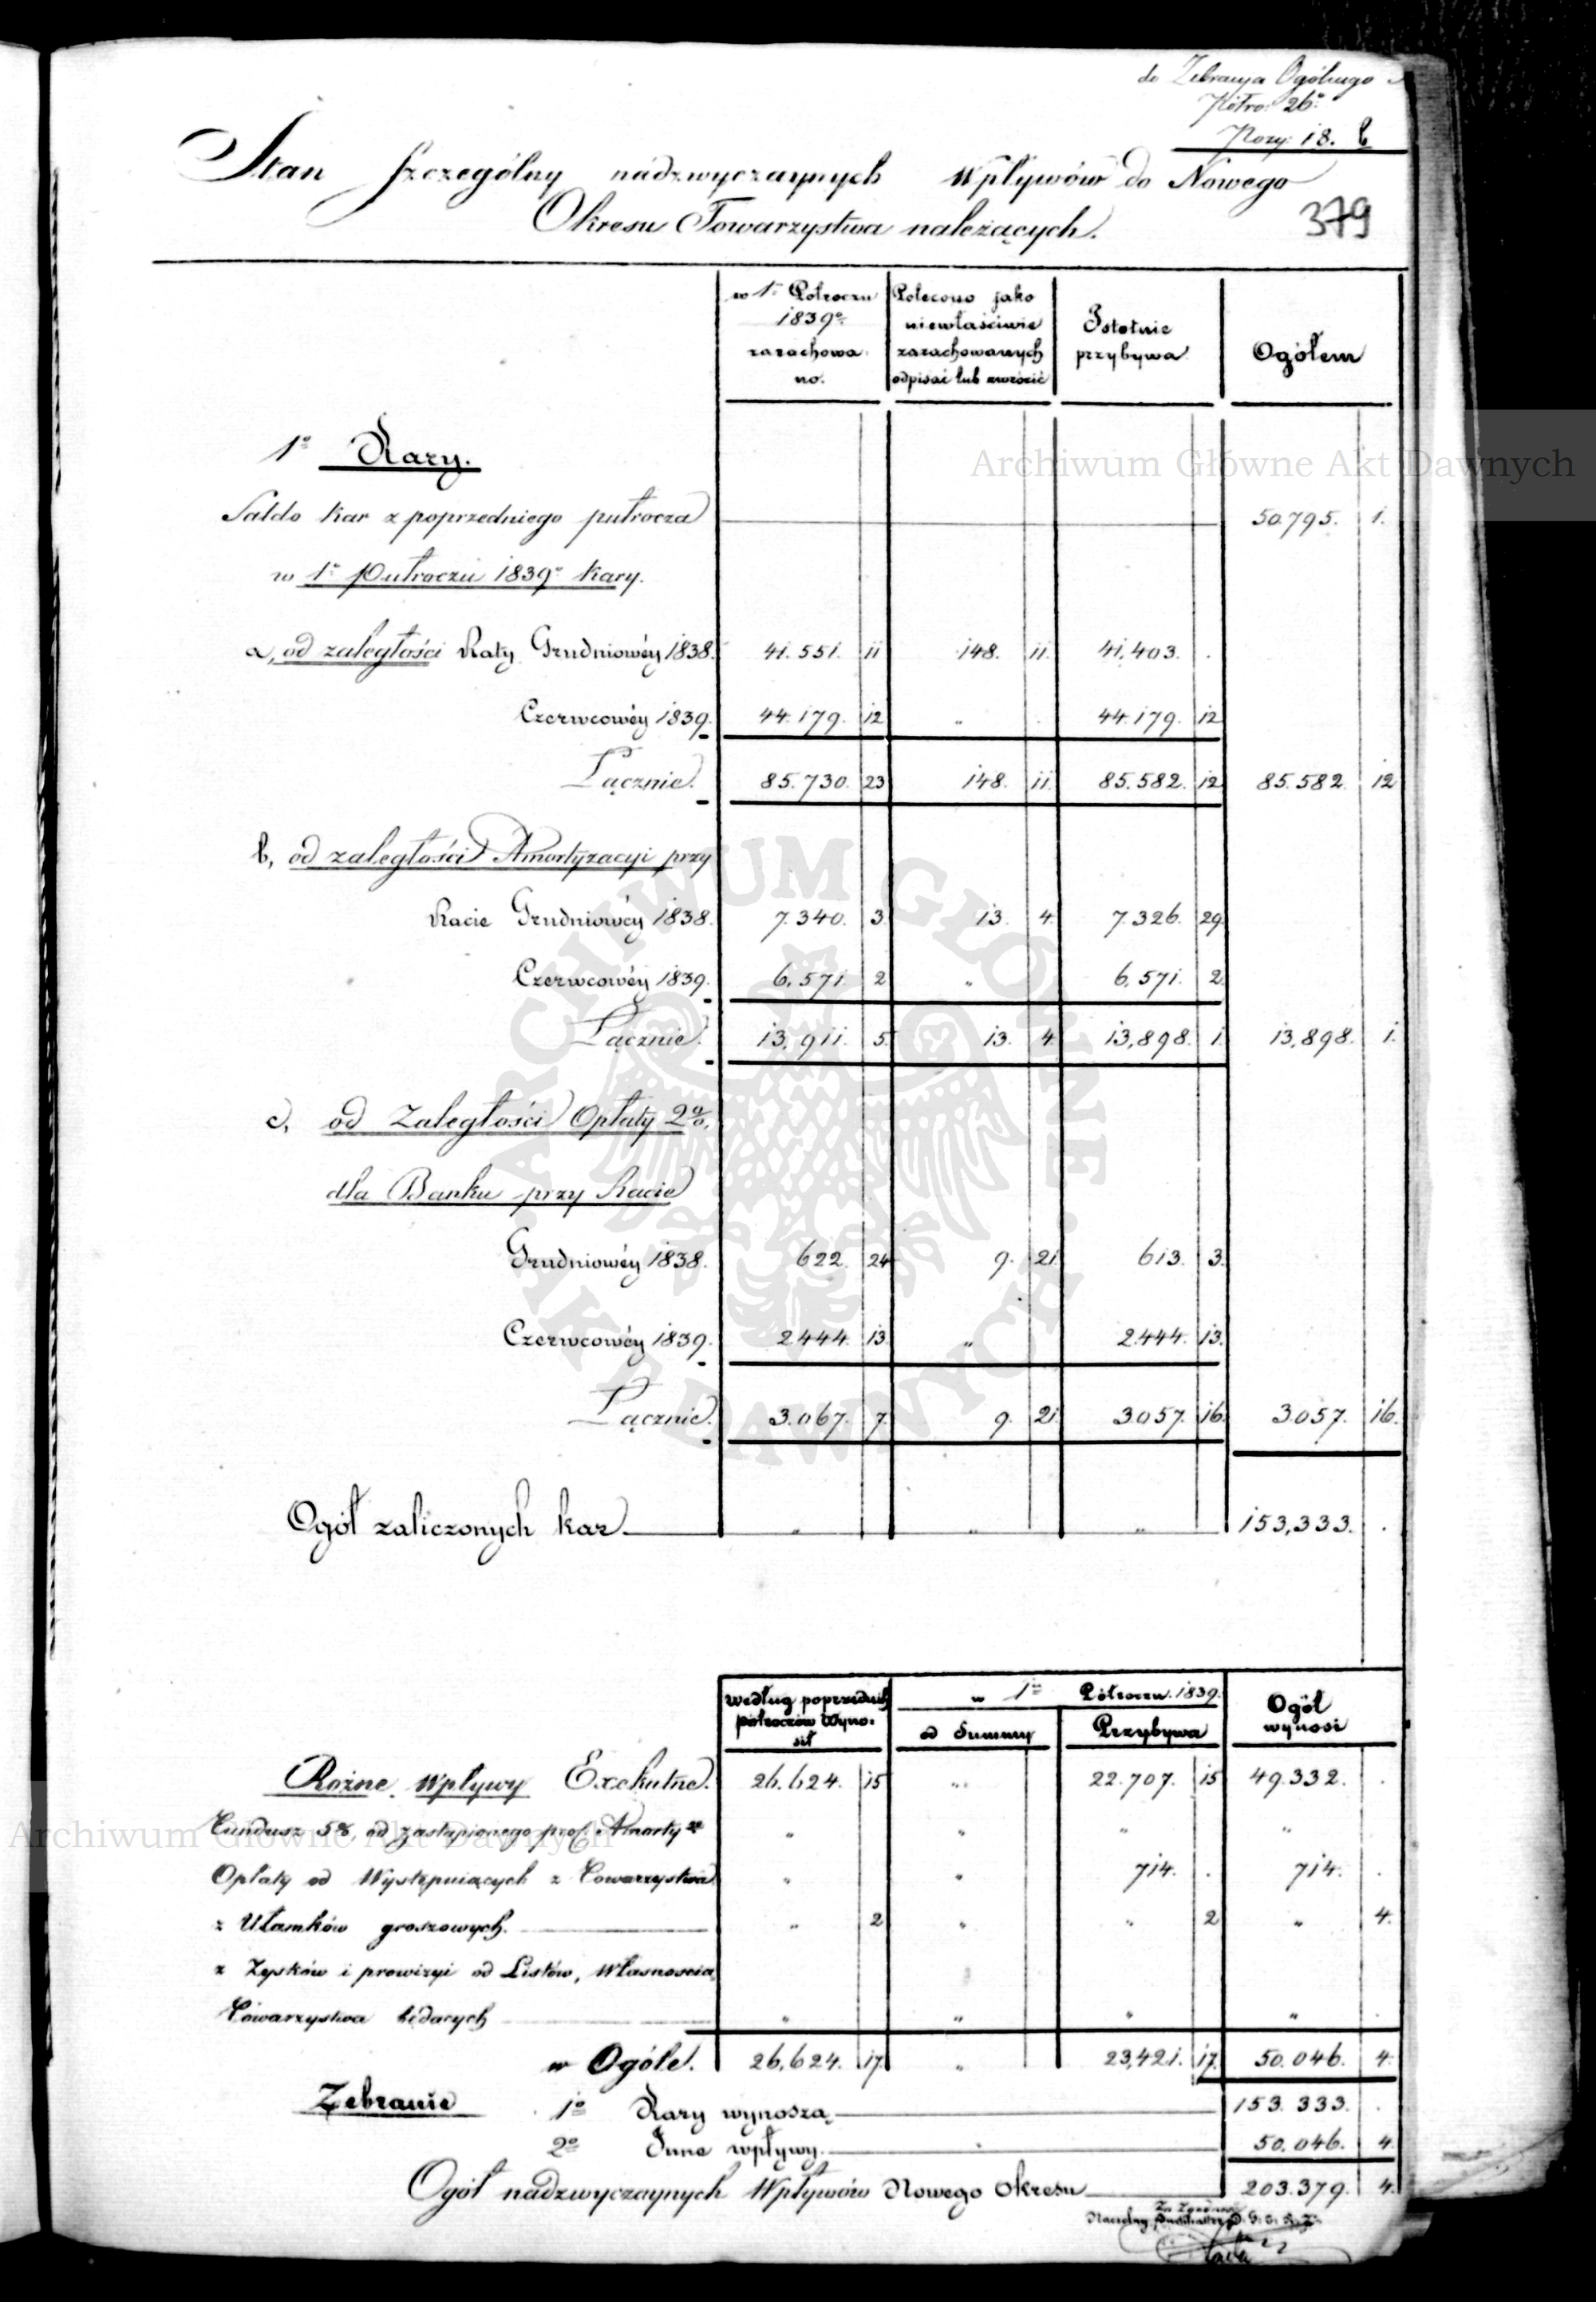 do Zebrania Ogólnego
Nro: 26°
Pozy: 18. b
Stan szczególny nadzwyczaynych Wpływów do Nowego
Okresu Towarzystwa należących.
379
w 1m Półroczu 1839o zarachowano.
Polecono jako niewłaściwie zarachowanych odpisać lub zwrócić
Istotnie przybywa
Ogółem
1o Kary.
Saldo kar z poprzedniego pułrocza 50.795. 1.
w 1m Pułroczu 1839o kary.
a, od zaległości Raty Grudniowéy 1838. 41.551. 11 148. 11. 41,403. .
Czerwcowéy 1839. 44.179. 12 „ . 44.179. 12
Łącznie. 85.730. 23 148. 11. 85.582. 12 85.582. 12
b, od zaległości Amortyzacyi przy
Racie Grudniowéy 1838. 7.340. 3 13. 4. 7.326. 29.
Czerwcowéy 1839. 6.571. 2 „ 6.571. 2.
Łącznie. 13,911. 5. 13. 4 13,898. 1. 13,898. 1.
c, od Zaległości Opłaty 2%,
dla Banku przy Racie
Grudniowéy 1838. 622. 24 9. 21. 613. 3.
Czerwcowéy 1839. 2444. 13. „ 2444. 13.
Łącznie. 3.067. 7. 9. 21. 3057. 16. 3.057. 16.
Ogół zaliczonych kar „ „ „ 153,333. .
według poprzednich półroczów wynosił
w 1m Półroczu 1839.
od Summy
Przybywa
Ogół wynosi
Rożne Wpływy Exekutne. 26.624. 15 „ 22.707. 15 49.332. .
Fundusz 5% od zastąpionego prof. Amorty „ „ „ „
Opłaty od Występuiących z Towarzystwa „ „ 714. . 714. .
z Ułamków groszowych. „ 2 „ „ 2 „ 4.
z Zysków i prowizyi od Listów, Własnoscią
Towarzystwa będących „ „ „ „ .
w Ogóle. 26,624. 17. „ 23,421. 17. 50.046. 4.
Zebranie 1o Kary wynoszą 153.333. .
2o Inne wpływy. 50.046. 4.
Ogół nadzwyczaynych Wpływów Nowego Okresu 203.379. 4.
Naczelny
Archiwum Główne Akt Dawnych
Archiwum Główne Akt Dawnych
ARCHIWUM GŁÓWNE AKT DAWNYCH